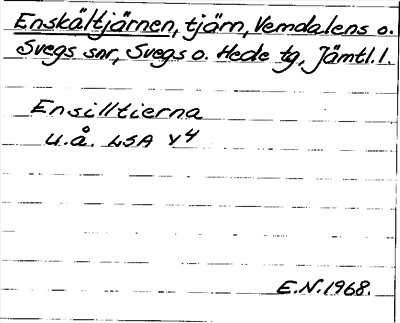 Enskältjärnen, tjärn, Vemdalens o.
Svegs snr, Svegs o. Hede tg, Jämtl. l.
Ensilltierna
U.å. LSA Y4
E.N. 1968.